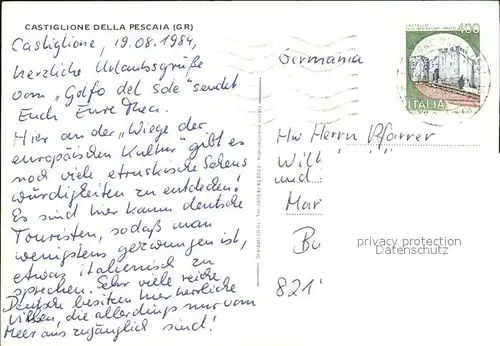 CASTIGLIONE DELLA PESCAIA (GR)
Castiglione, 19.08.1984,
herzliche Urlaubsgrüße
vom "Golfo del Sole" sendet
Euch Eure Thea.
Hier an der "Wiege der
europäischen Kultur" gibt es
noch viele etruskische Sehens
würdigkeiten zu entdecken!
Es sind hier kaum deutsche
Touristen, sodaß man
wenigstens gezwungen ist,
etwas italienisch zu
sprechen. Sehr viele reiche
Deutsche besitzen hier herrliche
Villen, die allerdings nur vom
Meer aus zugänglich sind!
Germania
400
ITALIA
Herrn Pfarrer
und
Mar
Bu
821
privacy protection
Datenschutz